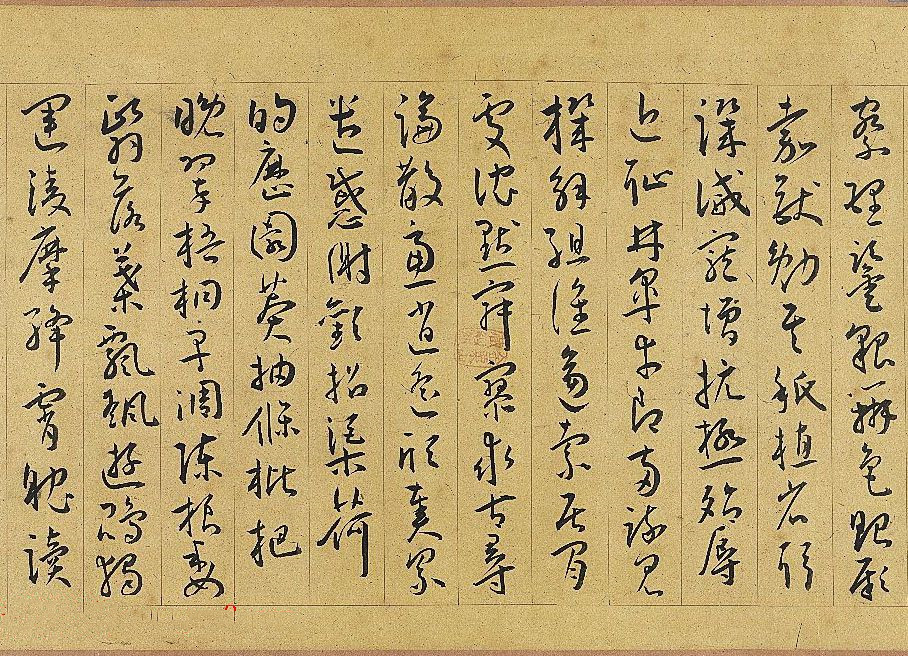 察理鑒貌辨色貽厥
嘉猷勉其祗植省躬
譏誡寵增抗極殆辱
近恥林皋幸即兩疏見
機解組誰逼索居閒
處沈默寂寥求古尋
論散慮逍遙欣奏累
遣慼謝歡招渠荷
的歷園莽抽條枇杷
晚翠梧桐早凋陳根委
翳落葉飄颻遊鵾獨
運凌摩絳霄耽讀